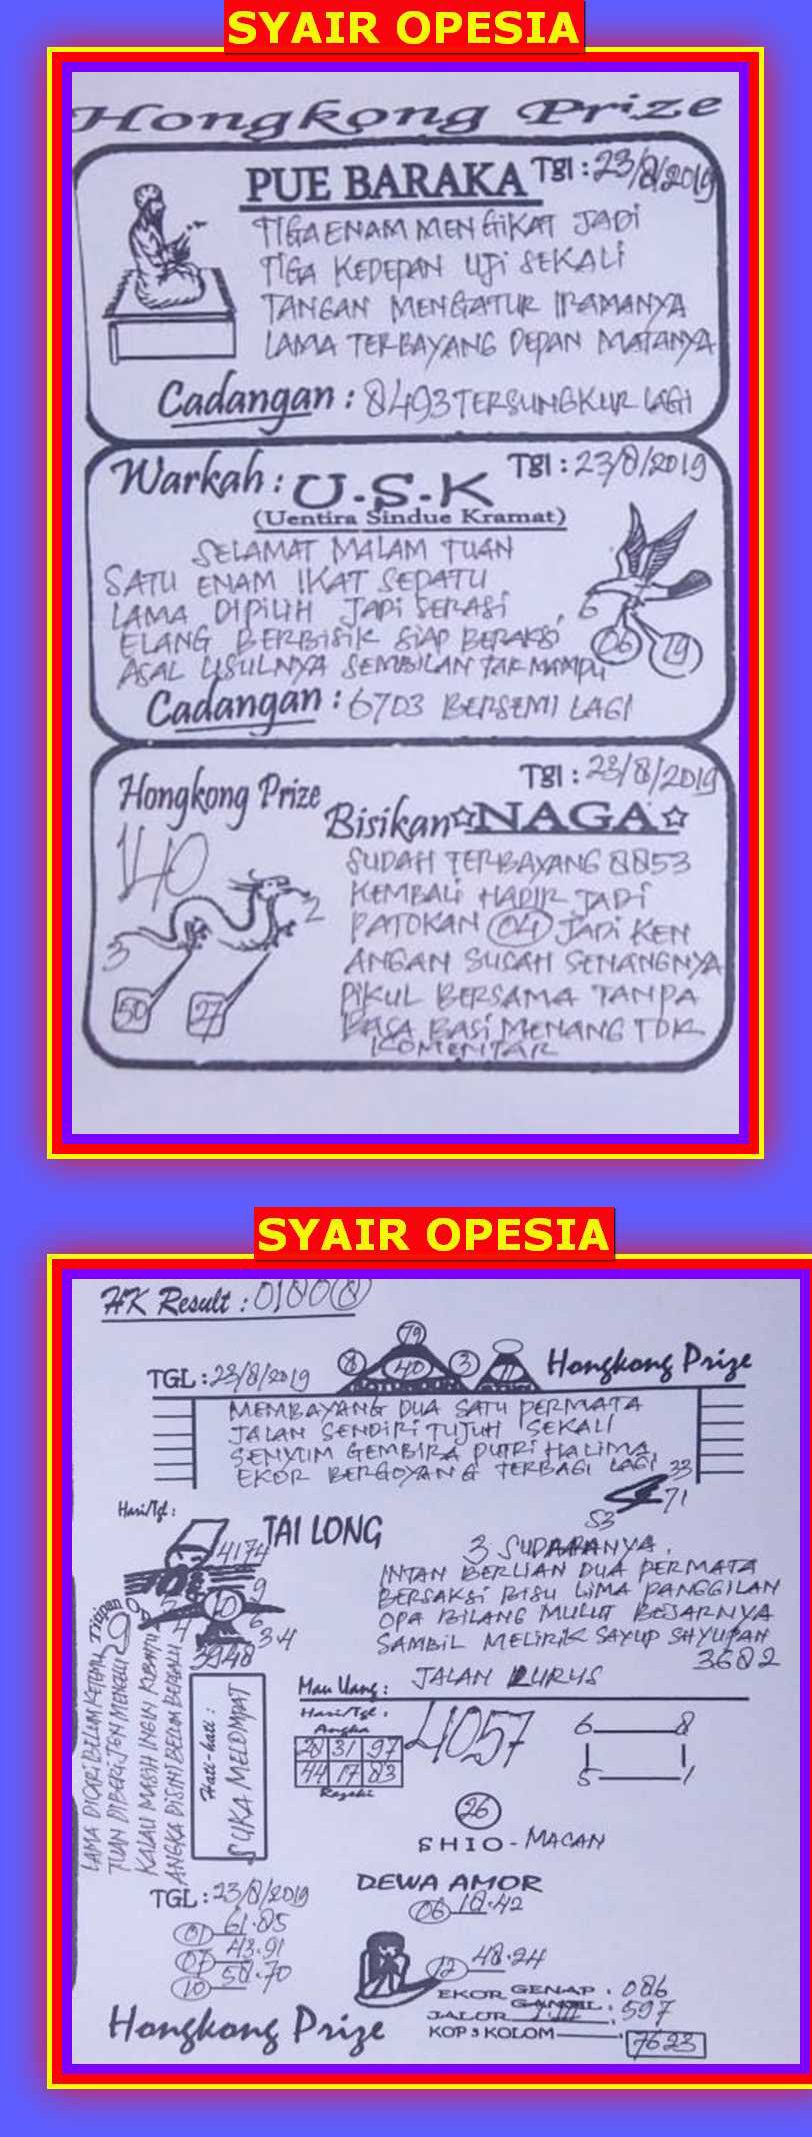 SYAIR OPESIA
Hongkong Prize
PUE BARAKA Tgl : 23/8/2019
TIGA ENAM MENGIKAT JADI
TIGA KEDEPAN UJI SEKALI
TANGAN MENGATUR IRAMANYA
LAMA TERBAYANG DEPAN MATANYA
Cadangan : 8493 TERSUNGKUR LAGI
Warkah : U.S.K Tgl : 23/8/2019
(Uentira Sindue Kramat)
SELAMAT MALAM TUAN
SATU ENAM IKAT SEPATU
LAMA DIPILIH JADI SERASI
ELANG BERBISIK SIAP BERAKSI
ASAL USULNYA SEMBILAN TAK MAMPU
6
06 19
Cadangan : 6703 BERSEMI LAGI
Hongkong Prize Tgl : 23/8/2019
Bisikan ☆NAGA☆
140
3 2
50 27
SUDAH TERBAYANG 8853
KEMBALI HADIR JADI
PATOKAN 04 JADI KEN
ANGAN SUSAH SENANGNYA
PIKUL BERSAMA TANPA
BASA BASI MENANG TDK
KOMENTAR
SYAIR OPESIA
HK Result : 01808
TGL : 23/8/2019
79
8 40 3 11
Hongkong Prize
MEMBAYANG DUA SATU PERMATA
JALAN SENDIRI TUJUH SEKALI
SENYUM GEMBIRA PUTRI HALIMA
EKOR BERGOYANG TERBAGI LAGI
33
71
53
Hari/Tgl :
TAI LONG
4174
10
9
6
3.4
3948
Titipan
LAMA DICARI BELUM KETEMU
TUAN DIBERI
KALAU MASIH INGIN
ANGKA DISINI BELUM BERLAKU
Hati-hati :
SUKA MELOMPAT
3 SUDARANYA
INTAN BERLIAN DUA PERMATA
BERSAKSI BISU LIMA PANGGILAN
OPA BILANG MULUT BEJARNYA
SAMBIL MELIRIK SAYUP SAYUPAN
3682
Mau Uang : JALAN LURUS
Hari/Tgl :
Angka
28 31 97
44 17 83
Rezeki
4057
6 8
5 1
26
SHIO - MACAN
TGL : 23/8/2019
01 61.85
07 43.91
10 58.70
Hongkong Prize
DEWA AMOR
06 18.42
12 48.24
EKOR GENAP : 086
GANJIL : 597
JALUR
KOP 3 KOLOM 7623